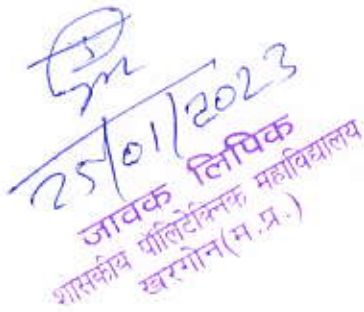 25/01/2023
जावक लिपिक
शासकीय पॉलिटेक्निक महाविद्यालय
खरगोन (म.प्र.)